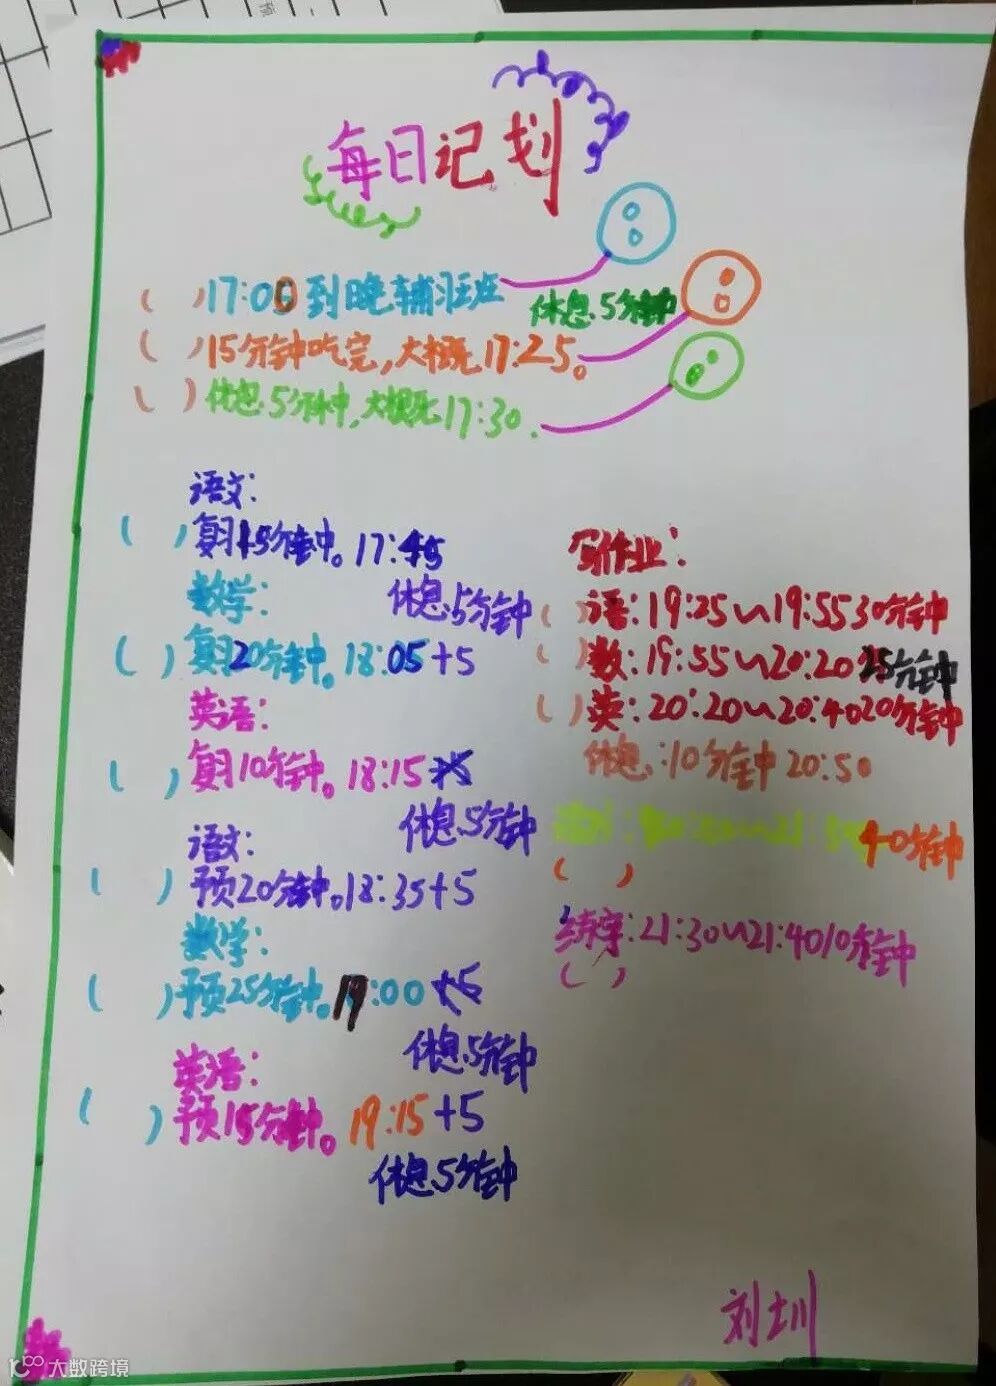 每日记划
( )17:05到晚辅班
休息5分钟
( )15分钟吃完,大概17:25。
( )休息5分钟,大概17:30.
语文:
( )复习15分钟。17:45
休息5分钟
数学:
( )复习20分钟。18:05+5
英语:
( )复习10分钟。18:15
休息5分钟
语文:
( )预20分钟。18:35+5
数学:
( )预25分钟。19:00
休息5分钟
英语:
( )预15分钟。19:15+5
休息5分钟
写作业:
( )语:19:25~19:55 30分钟
( )数:19:55~20:20 25分钟
( )英:20:20~20:40 20分钟
休息:10分钟 20:50
40分钟
( )
练字:21:30~21:40 10分钟
( )
刘圳
大数跨境